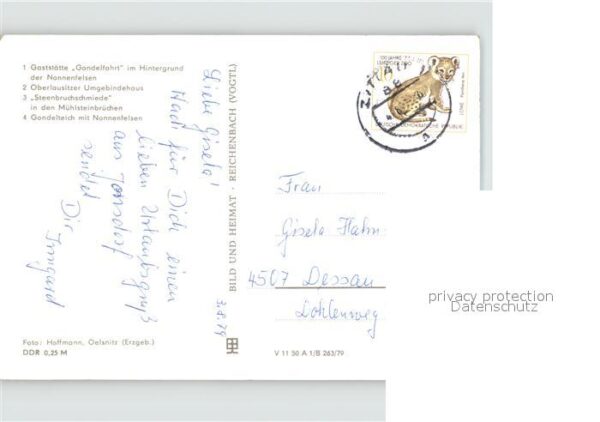 1 Gaststätte „Gondelfahrt" im Hintergrund
der Nonnenfelsen
2 Oberlausitzer Umgebindehaus
3 „Steinbruchschmiede"
in den Mühlsteinbrüchen
4 Gondelteich mit Nonnenfelsen
Liebe Gisela!
Auch für Dich einen
lieben Urlaubsgruß
aus Jonsdorf
sendet
Dir
Irmgard
3.8.79
BILD UND HEIMAT · REICHENBACH (VOGTL)
ZITTAU
DEUTSCHE DEMOKRATISCHE REPUBLIK
Frau
Gisela Hahn
4507 Dessau
privacy protection
Datenschutz
Foto: Hoffmann, Oelsnitz (Erzgeb.)
DDR 0,25 M
V 11 50 A 1/B 263/79